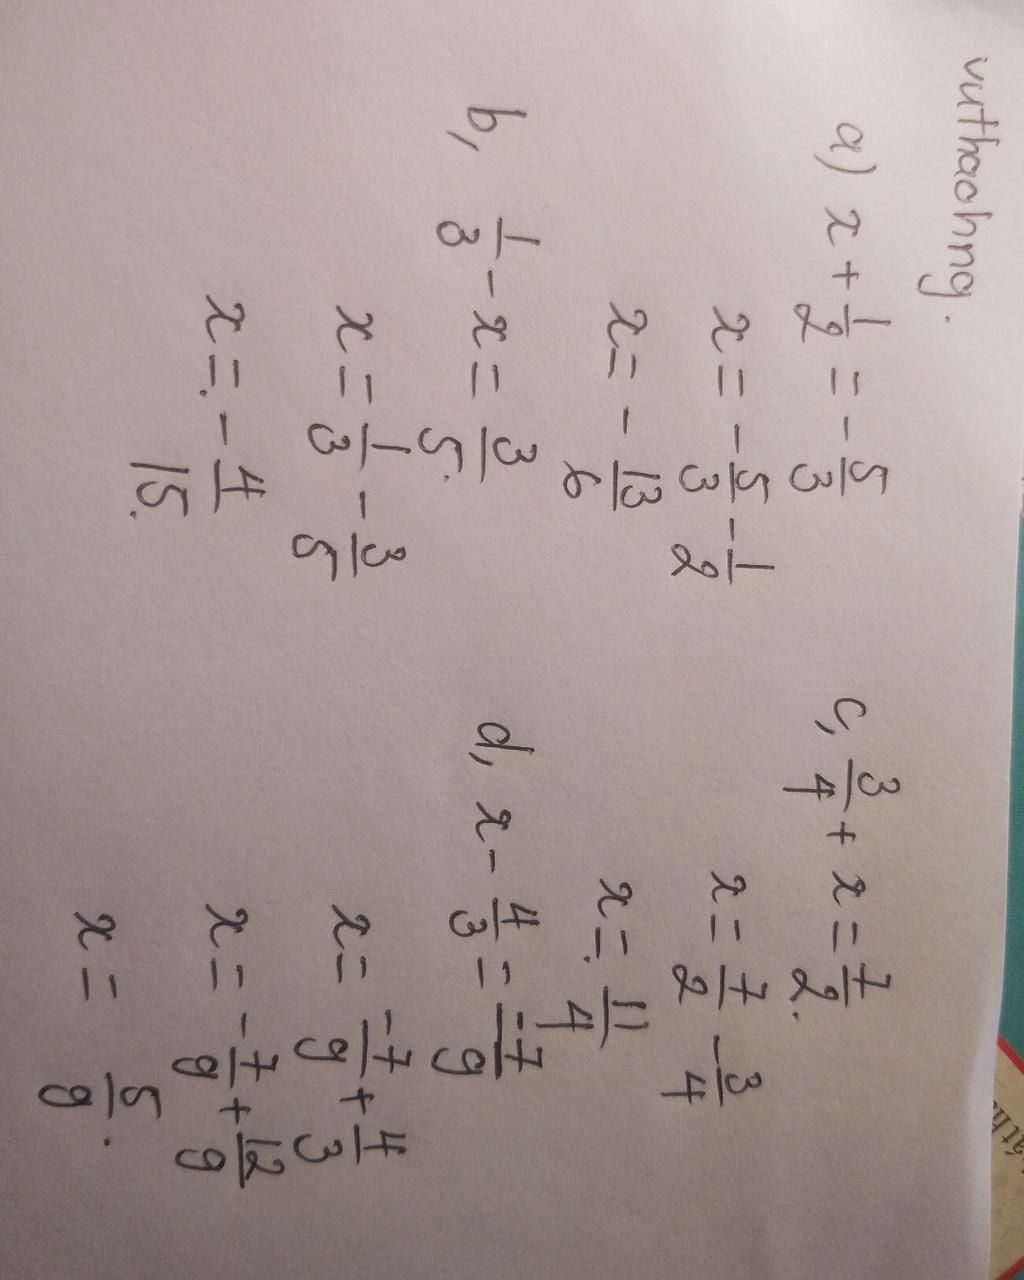 vuthaohng.
a) x + 1/2 = - 5/3
x = - 5/3 - 1/2
x = - 13/6
b, 1/3 - x = 3/5.
x = 1/3 - 3/5
x = - 4/15.
c, 3/4 + x = 7/2.
x = 7/2 - 3/4
x = 11/4
d, x - 4/3 = -7/9
x = -7/9 + 4/3
x = -7/9 + 12/9
x = 5/9.